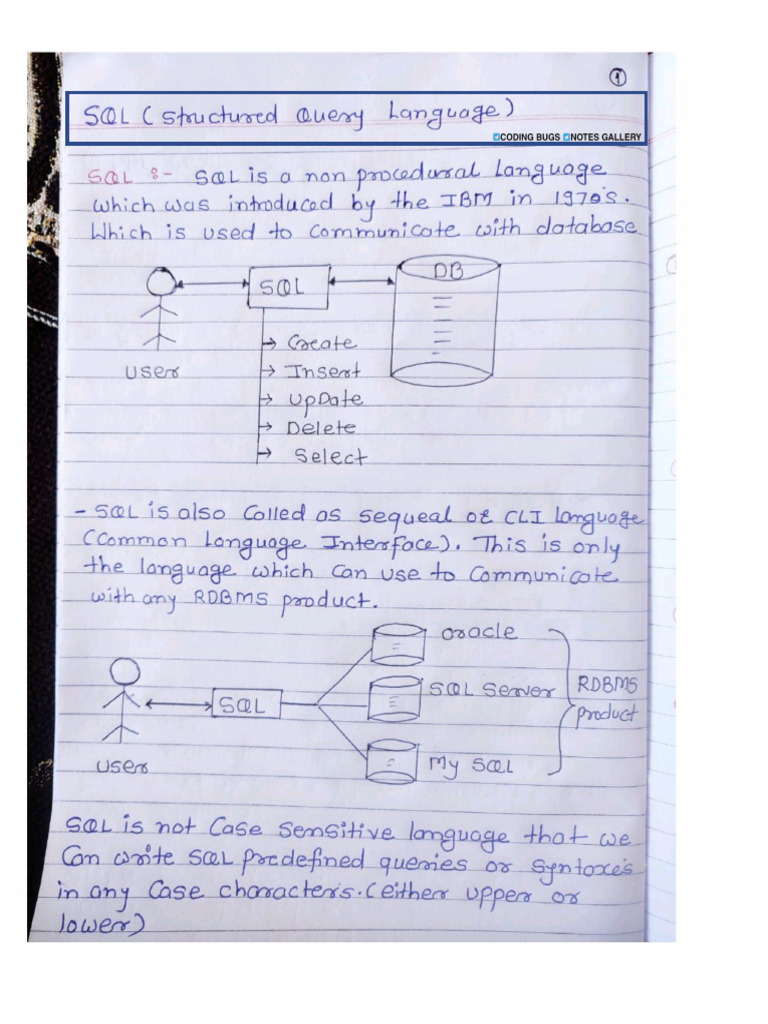 1
SQL (Structured Query Language)
CODING BUGS NOTES GALLERY
SQL :- SQL is a non procedural Language
which was introduced by the IBM in 1970's.
Which is used to Communicate with database
DB
SQL
User
→ Create
→ Insert
→ UpDate
→ Delete
→ Select
- SQL is also Called as sequeal or CLI language
(Common Language Interface). This is only
the language which Can use to Communicate
with any RDBMS product.
Oracle
SQL Server
My SQL
RDBMS
product
SQL
User
SQL is not Case sensitive language that we
Can write SQL predefined queries or syntaxes
in any Case characters. (either upper or
lower)